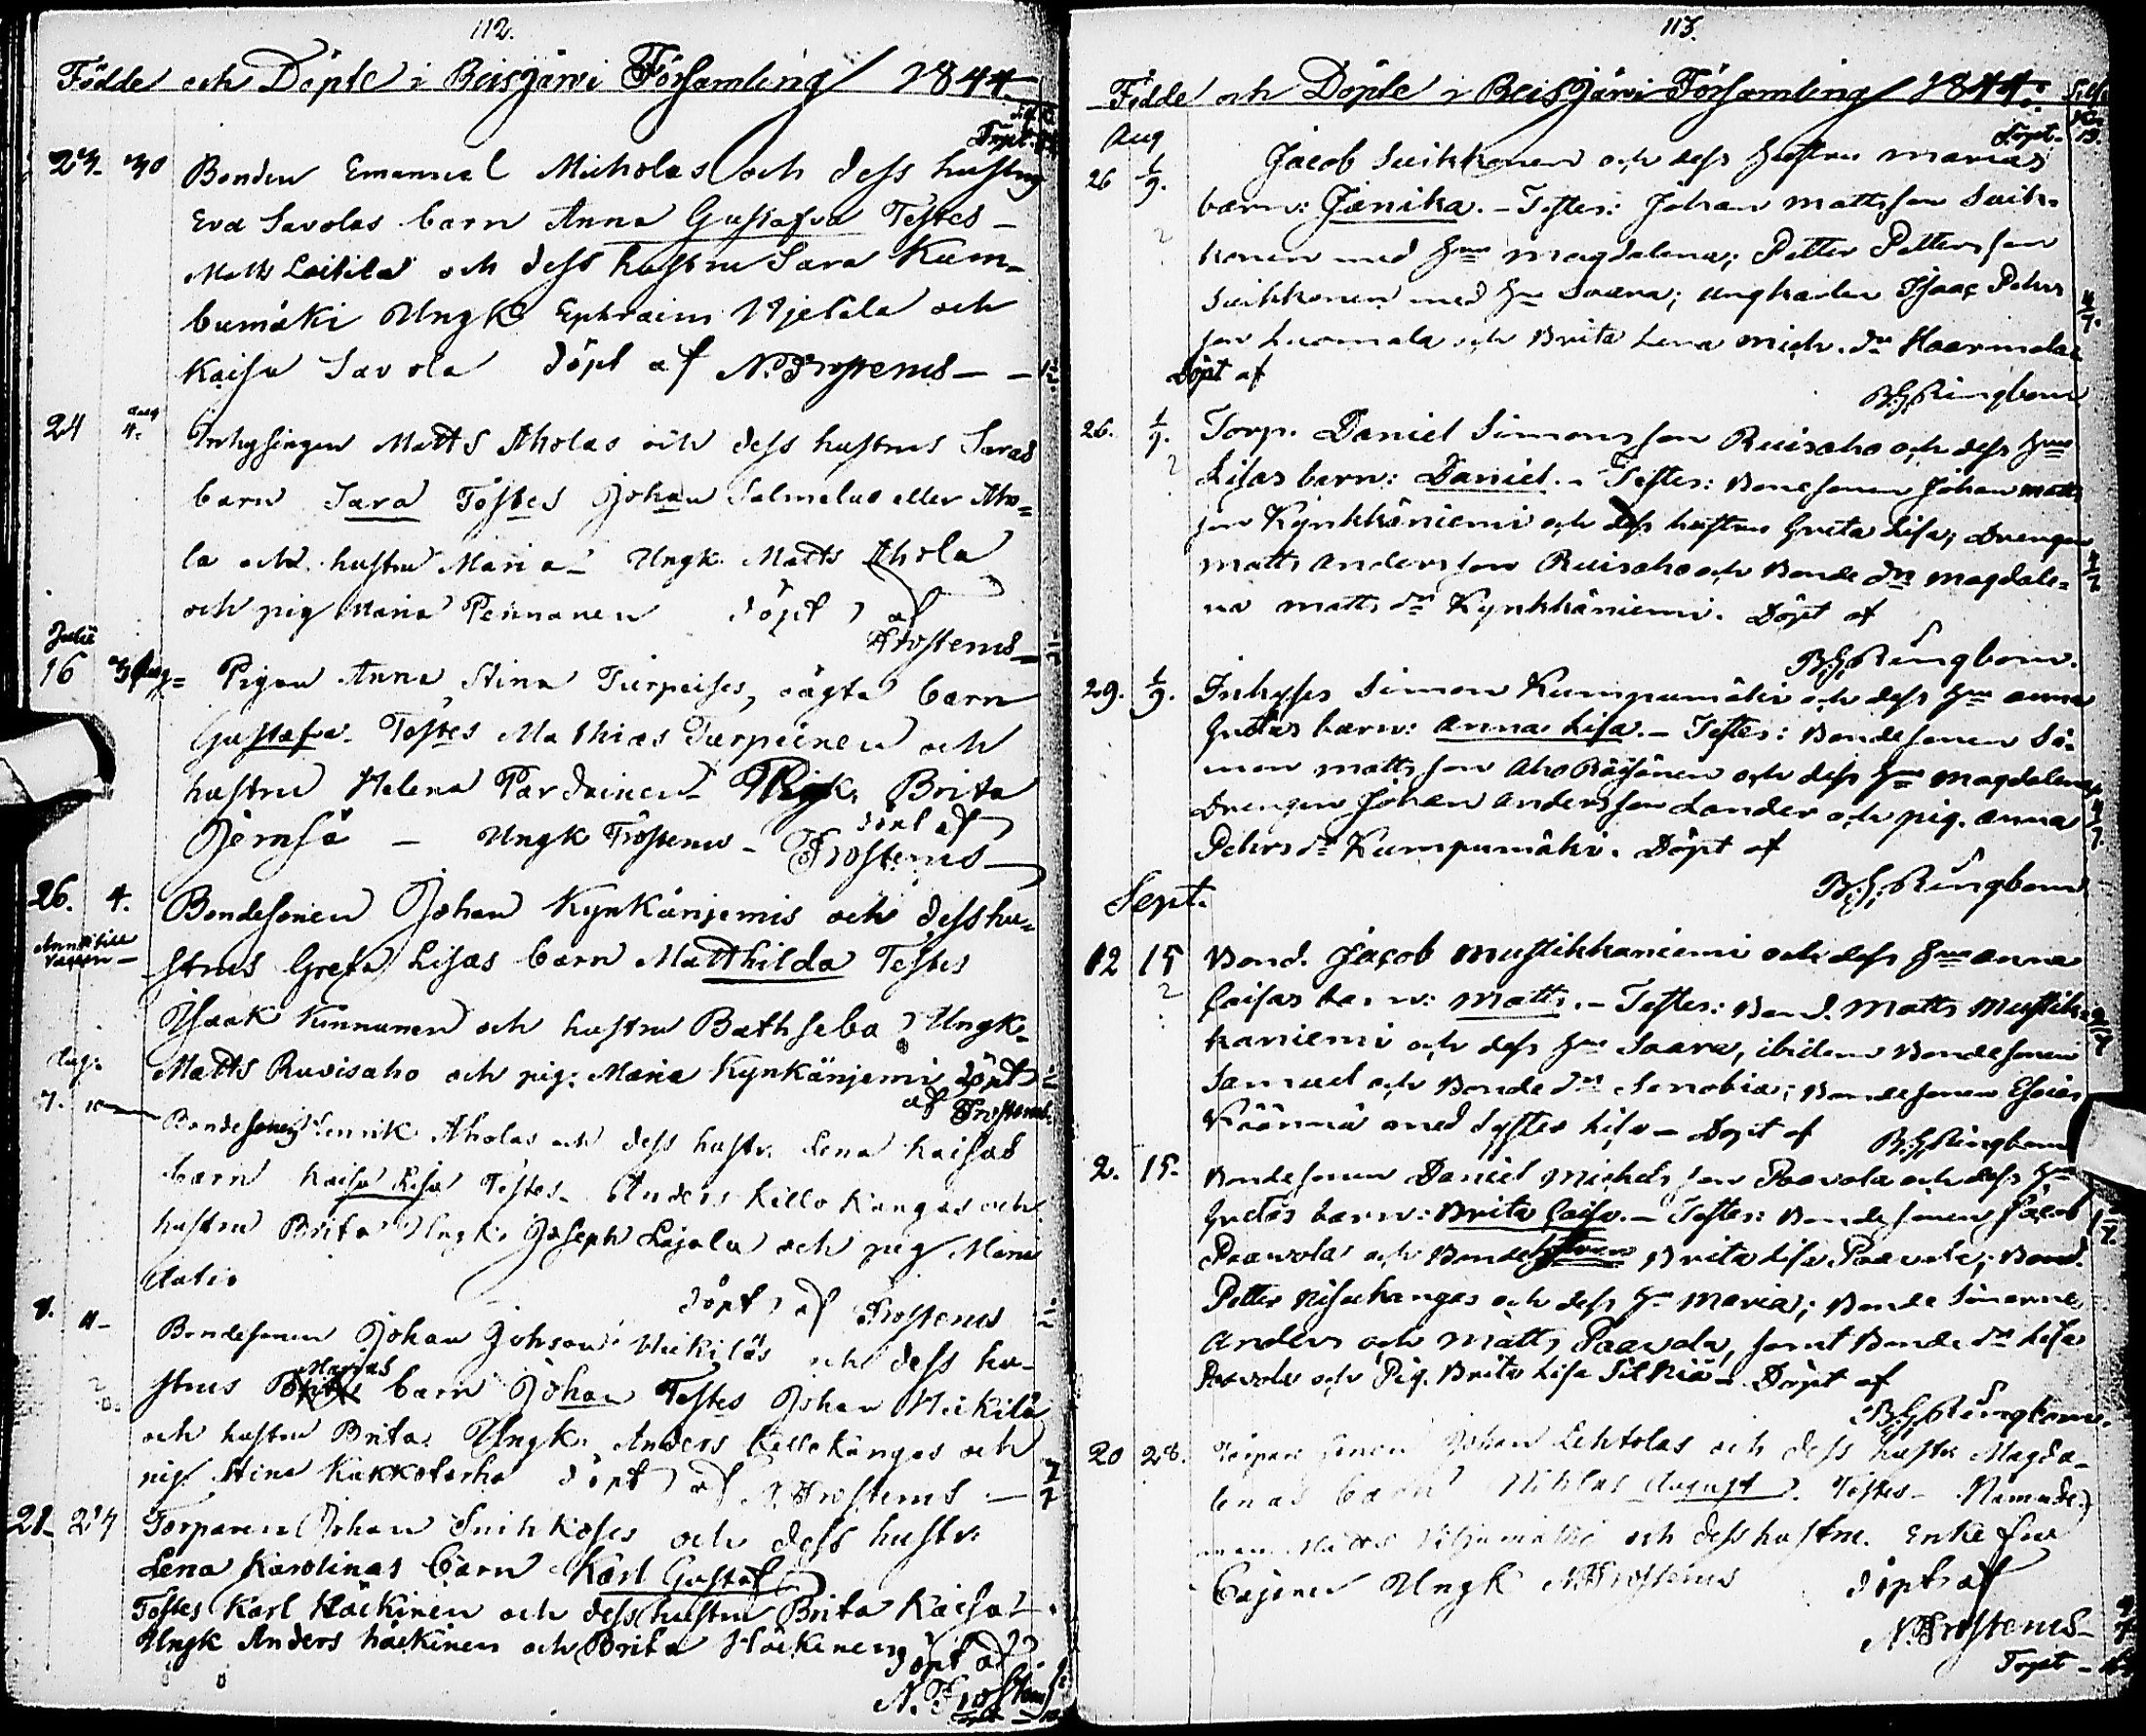 112.
Födde och Döpte i Reisjärvi Församling 1844.
Trpt.
23. 30 Bonden Emanuel Micholas och dess hustrus
Eva Savolas barn Anna Gustafva Testes
Matts Leitila och dess hustru Sara Kum-
bumäki Ungk Ephraim Hjelila och
Kaisa Savola döpt af N. Frosterus
24 Aug 4. Inhysingen Matts Aholas och dess hustrus Saras
barn Sara Testes Johan Salmelas eller Aho=
la och hustru Maria Ungk. Matts Ahola
och pig Maria Pennanen döpt af
Frosterus
Julii
16 Aug= Pigan Anna Stina Turpeises, oägta barn
Gustafva. Testes Mathias Turpeinen och
hustru Helena Pardainen Pigk. Brita
Jernså – Ungk Frosterus – döpt af Frosterus
26. 4. Bondesonen Johan Kynkänjemis och dess hu=
strus Greta Lisas barn Matthilda Testes
Isaak Kinnunen och hustru Bathseba Ungk=
Matts Ruvisaho och pig: Maria Kynkänjemi döpt
af Frosterus
Aug:
7. Bondesonen Henrik Aholas och dess hustr. Lena Kaisas
barn Kaisa Lisa Testes Anders Killo Kangas och
hustru Brita Ungk. Joseph Lajola och pig Maria
döpt af Frosterus
8. 11 Bondesonen Johan Johsons Hickiläs och dess hu-
strus Marias barn Johan Testes Johan Hickilä
och hustru Brita. Ungk. Anders Killokangas och
pig. Stina Kukkotarha döpt af N. Frosterus
21 Torparen Johan Snikkoses och dess hustr.
Lena Karolinas barn Karl Gustaf
Testes Karl Häckinen och dess hustru Brita Kaisa
Ungk Anders häckinen och Brita Häckinen
döpt af
N. Frosterus
113.
Födde och Döpte i Reisjärvi Församling 1844.
Aug Trpt. 13.
26 1/9. Jacob Suikkonens och dess hustrus Marias
barn: Janika. – Testes: Johan Mattsson Suik-
konen med Hru Magdalena; Petter Pettersson
Suikkonen med Hru Saara; ungkarlen Isaac Peters
son Luomala och Brita Lena Mich. dr Haarmalae
Döpt af
B.G. Ringbom
26. 1/9. Torp. Daniel Simonsson Ruisaho och dess Hrus
Lisas barn: Daniel. – Testes: Bondesonen Johan Matts
son Kynkkäniemi och dess hustru Greta Lisa; Drengen
Matts Andersson Ruisaho och Bonde dr Magdale=
na Matts dr Kynkkäniemi. Döpt af
B.G. Ringbom.
29. 1/9. Inhyses Simon Kumpumäkis och dess Hrus Anna
Gretas barn: Anna Lisa. – Testes: Bondesonen Si-
mon Mattsson Aho Räisänen och dess Hru Magdalena,
Drengen Johan Andersson Lander och pig. Anna
Peters dr Kumpumäki. Döpt af
B.G. Ringbom
Sept.
12 15 Bond. Jacob Mustikkaniemi och dess Hrus Anna
Caisas barn: Matts. – Testes: Bond. Matts Mustik-
kaniemi och dess Hru Saara, ibidem Bondesonen
Samuel och Bonde dr Senobia; Bondesonen Esaias
Väännä med syster Lisa – Döpt af B.G. Ringbom
2. 15. Bondesonen Daniel Michelsson Paavola och dess Hru
Gretas barn: Brita Caisa. – Testes: Bondesonen Jacob
Paavola och Bonde Brita Lisa Paavola; Bond.
Petter Nisukangas och dess Hru Maria; Bonde Sönerne
Anders och Matts Paavola, samt Bonde dr Lisa
Paavola och Pig. Brita Lisa Pilkiä – Döpt af
B.G. Ringbom.
20 28. Torpare sonen Johan Lehtolas och dess hustr. Magda-
lenas barn Niklas August. Testes – Nämnde-
och dess hustru. Enkefru
Cajenen Ungk N. Frosterus döpt af
N. Frosterus
Trpt